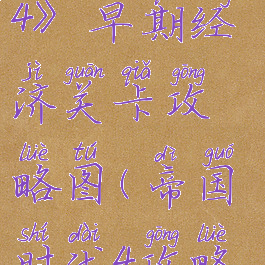 4》早期经
jì guān qiǎ gōng
济关卡攻
lüè tú dì guó
略图(帝国
shí dài gōng lüè
时代4攻略